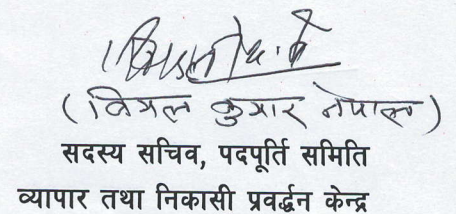 (विमल कुमार नेपाल)
सदस्य सचिव, पदपूर्ति समिति
व्यापार तथा निकासी प्रवर्द्धन केन्द्र